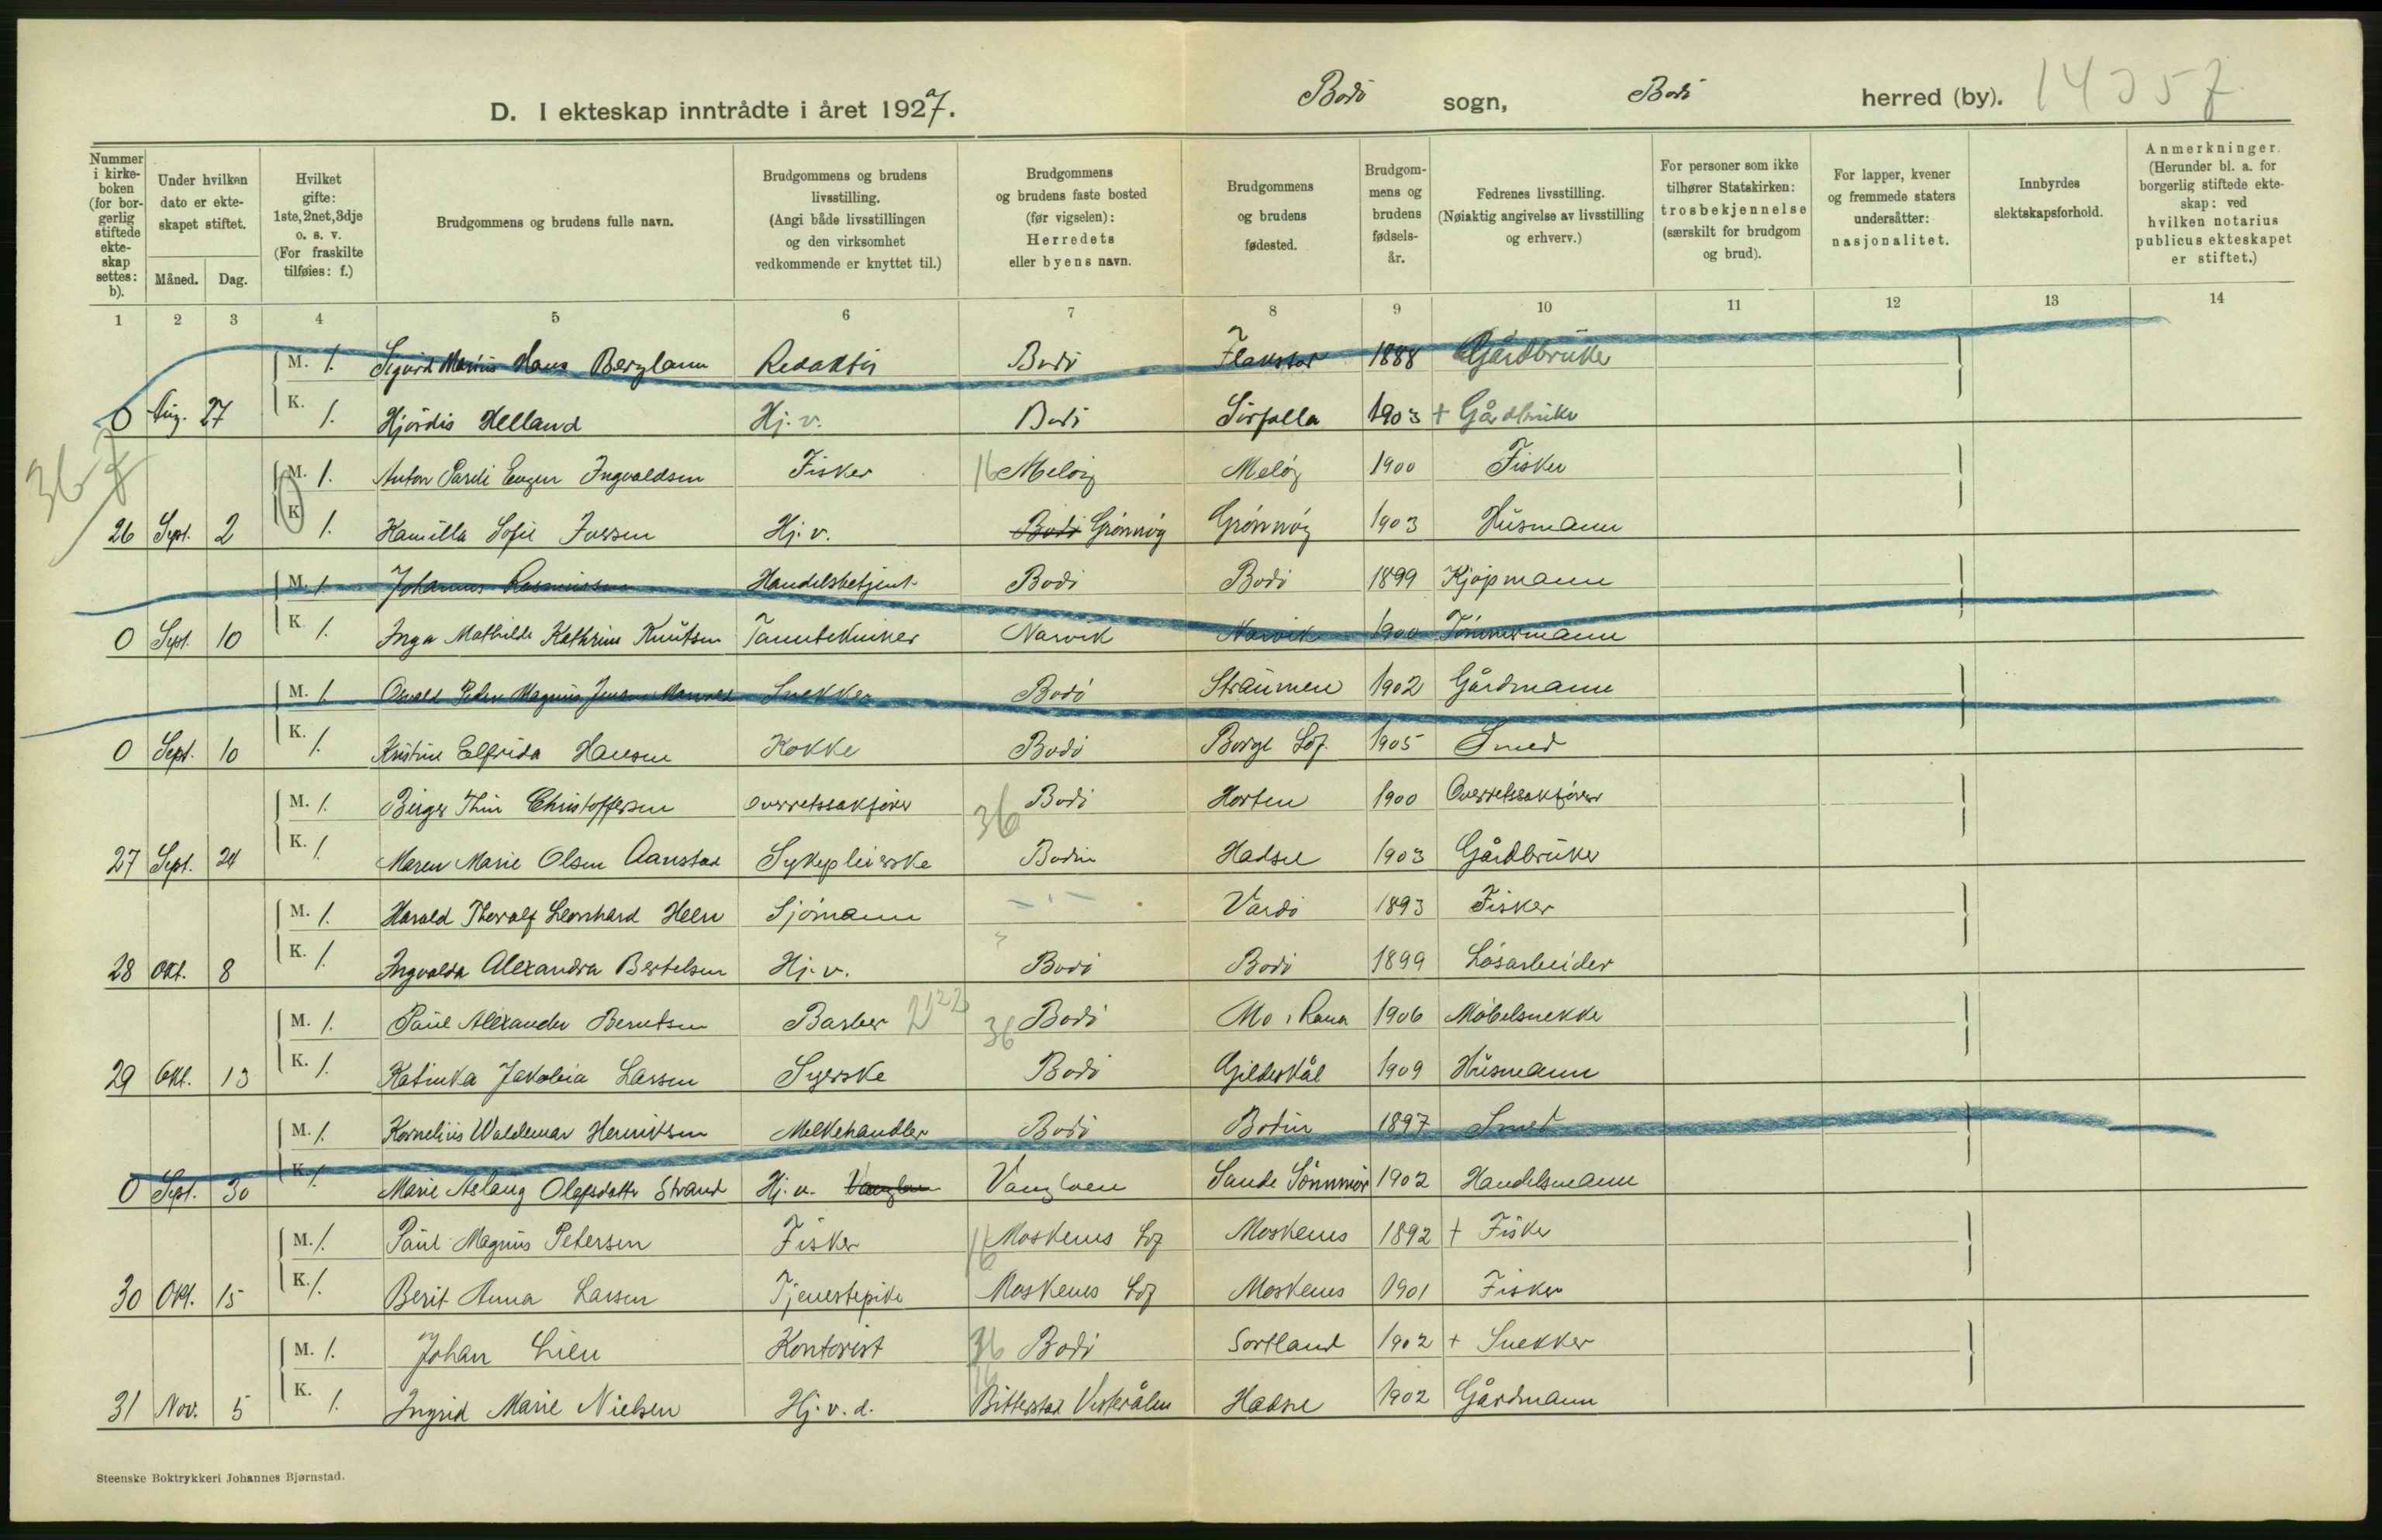 D. I ekteskap inntrådte i året 1927. Bodø sogn, Bodø herred (by). 14357
Nummer i kirkeboken (for borgerlig stiftede ekteskap settes: b).
Under hvilken dato er ekteskapet stiftet.
Måned. Dag.
Hvilket gifte: 1ste, 2net, 3dje o. s. v. (For fraskilte tilføies: f.)
Brudgommens og brudens fulle navn.
Brudgommens og brudens livsstilling. (Angi både livsstillingen og den virksomhet vedkommende er knyttet til.)
Brudgommens og brudens faste bosted (før vigselen): Herredets eller byens navn.
Brudgommens og brudens fødested.
Brudgommens og brudens fødselsår.
Fedrenes livsstilling. (Nøiaktig angivelse av livsstilling og erhverv.)
For personer som ikke tilhører Statskirken: trosbekjennelse (særskilt for brudgom og brud).
For lapper, kvener og fremmede staters undersåtter: nasjonalitet.
Innbyrdes slektskapsforhold.
Anmerkninger. (Herunder bl. a. for borgerlig stiftede ekteskap: ved hvilken notarius publicus ekteskapet er stiftet.)
1 2 3 4 5 6 7 8 9 10 11 12 13 14
M. 1. Sigurd Marius Hans Berglann Redaktør Bodø Flakstad 1888 Gårdbruker
0 Aug. 27 K. 1. Hjördis Helland Hj. v. Bodø Sörfolla 1903 + Gårdbruker
367
M. 1. Anton Pareli Eugen Ingvaldsen Fisker 16 Meløy Meløy 1900 Fisker
26 Sept. 2 K. 1. Kamilla Sofie Iversen Hj. v. Bodø Grönnøy Grönnøy 1903 Husmann
M. 1. Johannes Rasmussen Handelsbetjent Bodø Bodø 1899 Kjøpmann
0 Sept. 10 K. 1. Inga Mathilde Kathrine Knutsen Tanntekniker Narvik Narvik 1900 Tömmermann
M. 1. Oswald Peder Magnus Jensen Snekker Bodø Straumen 1902 Gårdmann
0 Sept. 10 K. 1. Kristine Elfrida Hansen Kokke Bodø Borge Lof. 1905 Smed
M. 1. Birger Thin Christoffersen Overretssakfører 36 Bodø Horten 1900 Overretssakfører
27 Sept. 24 K. 1. Maren Marie Olsen Aanstad Sykepleierske Bodin Hadsel 1903 Gårdbruker
M. 1. Harald Thoralf Leonhard Heen Sjömann Vardö 1893 Fisker
28 Okt. 8 K. 1. Ingvalda Alexandra Bertelsen Hj. v. Bodø Bodø 1899 Løsarbeider
M. 1. Paul Alexander Berntsen Barber 36 Bodø Mo i Rana 1906 Møbelsnekker
29 Okt. 13 K. 1. Katinka Jakobia Larsen Syerske Bodø Gildeskål 1909 Husmann
M. 1. Kornelius Waldemar Henriksen Melkehandler Bodø Bodin 1897 Smed
0 Sept. 30 K. 1. Marie Aslaug Olafsdattr Strand Hj. v. Vanylven Vanylven Sande Sönnmør 1902 Handelsmann
M. 1. Paul Magnus Petersen Fisker 16 Moskenes Lof Moskenes 1892 + Fisker
30 Okt. 15 K. 1. Berit Anna Larsen Tjenestepike Moskenes Lof Moskenes 1901 Fisker
M. 1. Johan Lien Kontorist 36 Bodø Sortland 1902 + Snekker
31 Nov. 5 K. 1. Ingrid Marie Nielsen Hj. v. d. 16 Bitterstad Vesterålen Hadsel 1902 Gårdmann
Steenske Boktrykkeri Johannes Bjørnstad.